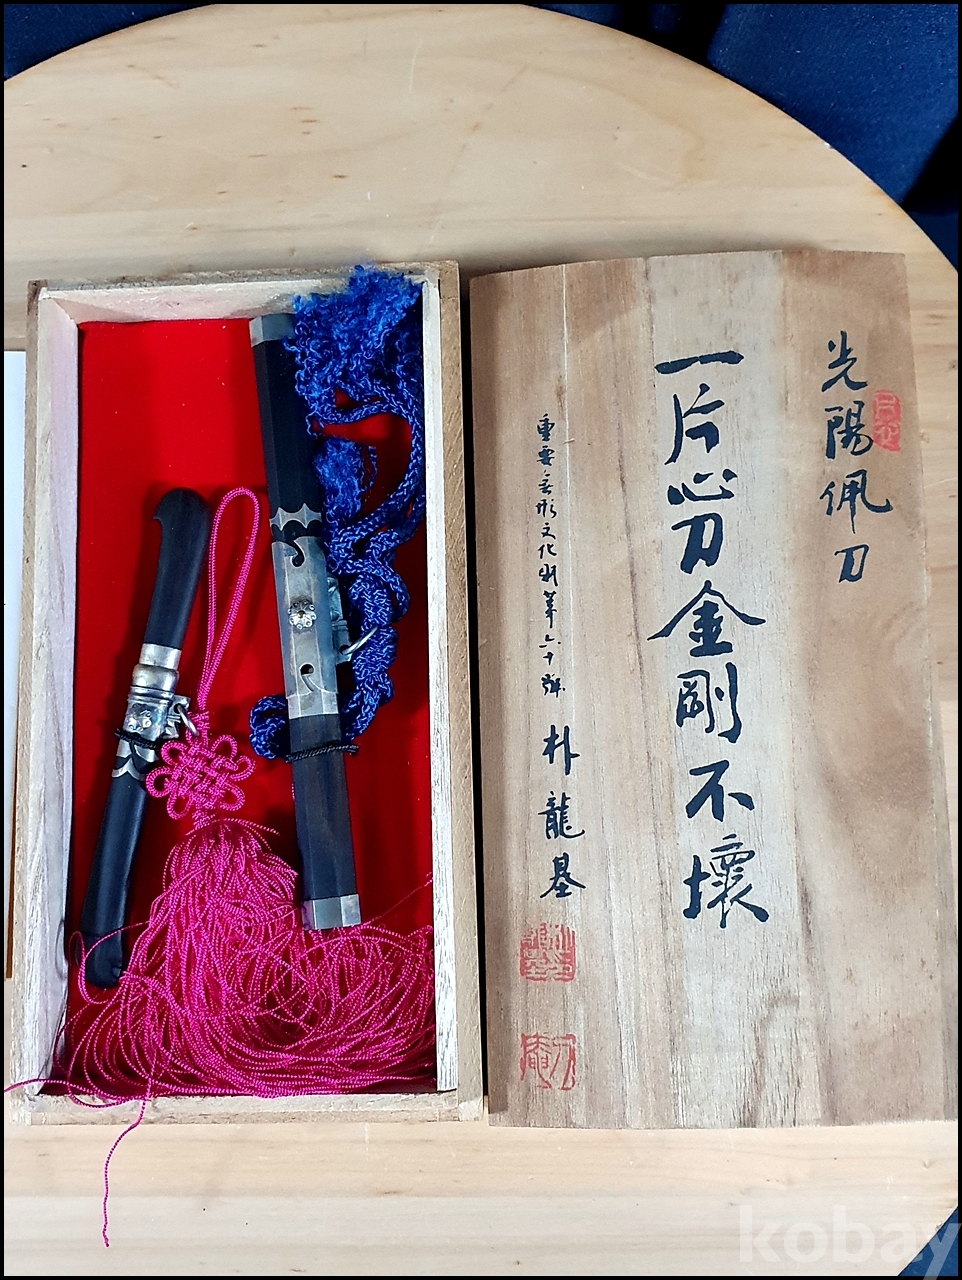 光陽佩刀
一片心刀金剛不壞
重要無形文化財第六十號 朴龍基
kobay